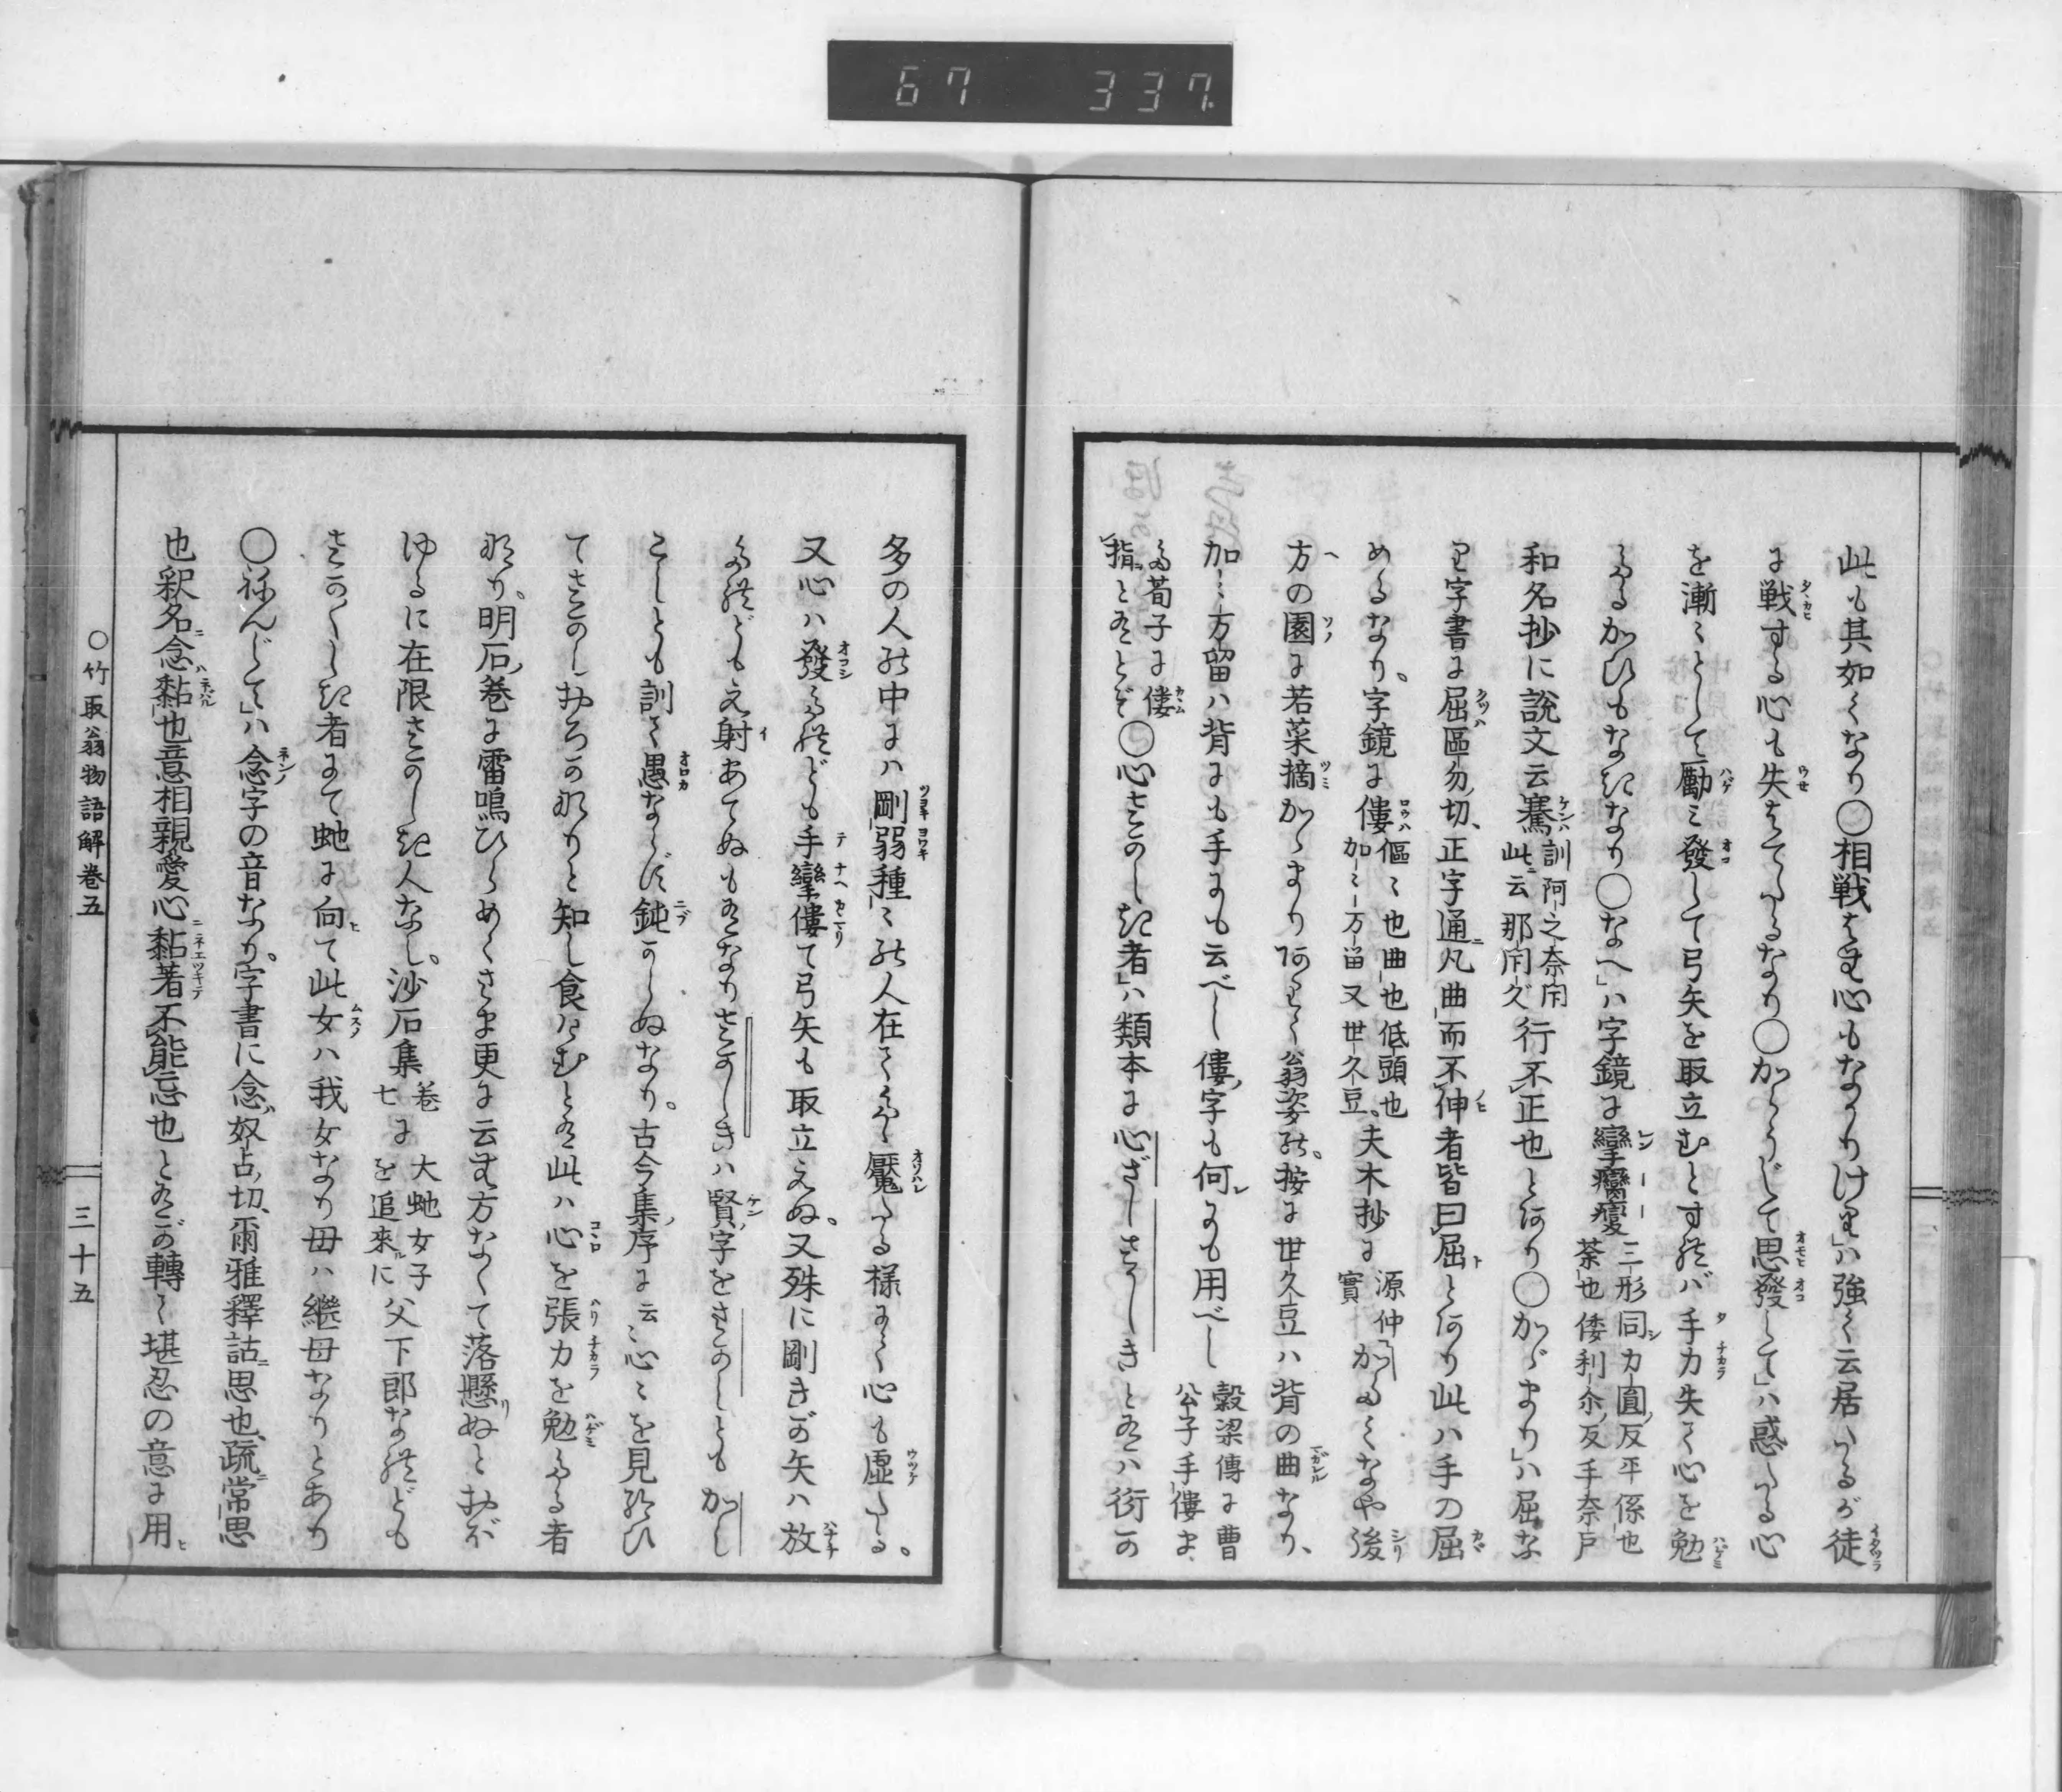 67 337
此も其如くなり○相戦はむ心もなかりけり」ハ強く云居たるが徒
に戦する心も失はてたるなり○からうじて思發して」ハ惑たる心
を漸〻として勵ミ發して弓矢を取立むとすれバ手力失て心を勉
たるかひもなきなり○なへ」ハ字鏡に攣癵癭三形同力圓反平係也荼也倭利尒反手奈戸
和名抄に說文云騫訓阿之奈閇此云那閇久行不正也とあり○かゞまり」ハ屈な
り字書に屈區勿切、正字通凡曲而不伸者皆曰屈とあり此ハ手の屈
めるなり。字鏡に僂傴〻也曲也低頭也加〻万留又世久豆。夫木抄に源仲實かたみなや後
方の園に若菜摘かゞまりありく翁姿の。按に世久豆ハ背の曲なり、
加〻万留ハ背にも手にも云べし僂字も何にも用べし穀梁傳に曹公子手僂ま
た荀子に僂指とあるとぞ○心さかしき者」ハ類本に心ざしさかしきとあるハ衍か
多の人の中にハ剛弱種〻の人在てやゝ魘たる樣にて心も虛たる。
又心ハ發たれども手攣僂て弓矢も取立えぬ。又殊に剛きが矢ハ放
たれどもえ射あてぬもあるなりさかしき」ハ賢字をさかしともかし
こしとも訓て愚ならず鈍からぬなり。古今集序に云〻心〻を見給ひ
てさかしおろかなりと知し食けむとある此ハ心を張力を勉たる者
なり。明石巻に雷鳴ひらめくさま更に云む方なくて落懸ぬとおぼ
ゆるに在限さかしき人なし。沙石集巻七に大虵女子を追來に父下郎なれども
さかしき者にて虵に向て此女ハ我女なり母ハ繼母なりとあり
○ねんじて」ハ念字の音なり。字書に念奴占切、爾雅釋詁思也、疏常思
也釈名念黏也意相親愛心黏著不能忘也とあるが轉て堪忍の意に用
○竹取翁物語解巻五
三十五